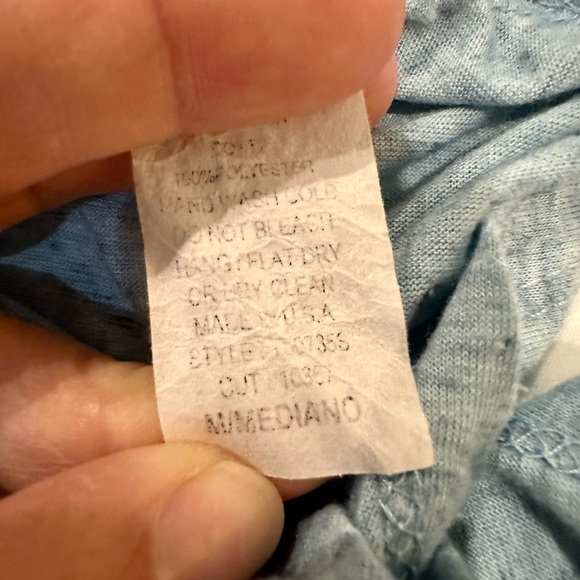 100%POLYESTER
HAND WASH COLD
DO NOT BLEACH
HANG/FLAT DRY
OR DRY CLEAN
MADE IN U.S.A
STYLE
CUT
M/MEDIANO